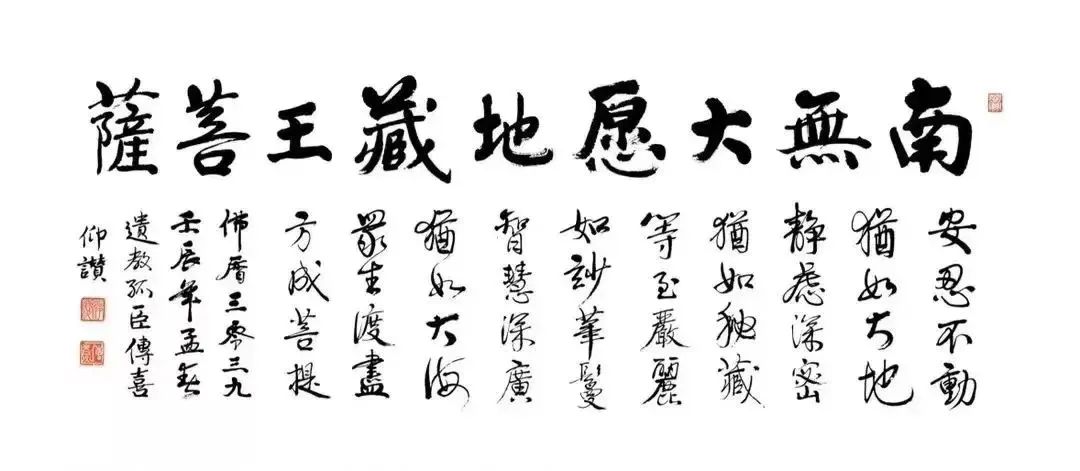 南無大愿地藏王菩薩
安忍不動
猶如大地
靜慮深密
猶如秘藏
等至嚴麗
如玅華鬘
智慧深廣
猶如大海
眾生渡盡
方成菩提
佛曆三零三九
壬辰年孟春
遺教孤臣傳喜
仰讃